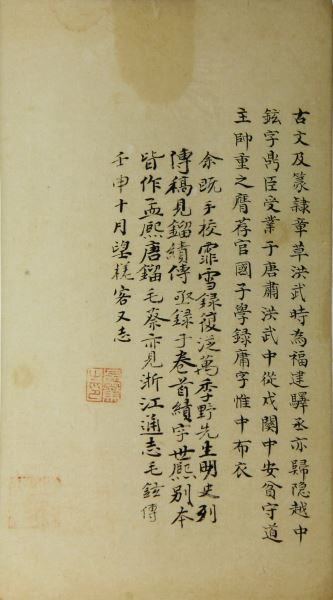 古文及篆隸章草洪武時為福建驛丞亦歸隐越中
鉉字鼎臣受業于唐肅洪武中從戍関中安貧守道
主帥重之膺荐官國子學録庸字惟中布衣
余既手校霏雪録復從萬季野先生明史列
傳稿見鎦績傳亟録于卷首績字世熙别本
皆作孟熙唐鎦毛蔡亦見浙江通志毛鉉傳
壬申十月望槎客又志